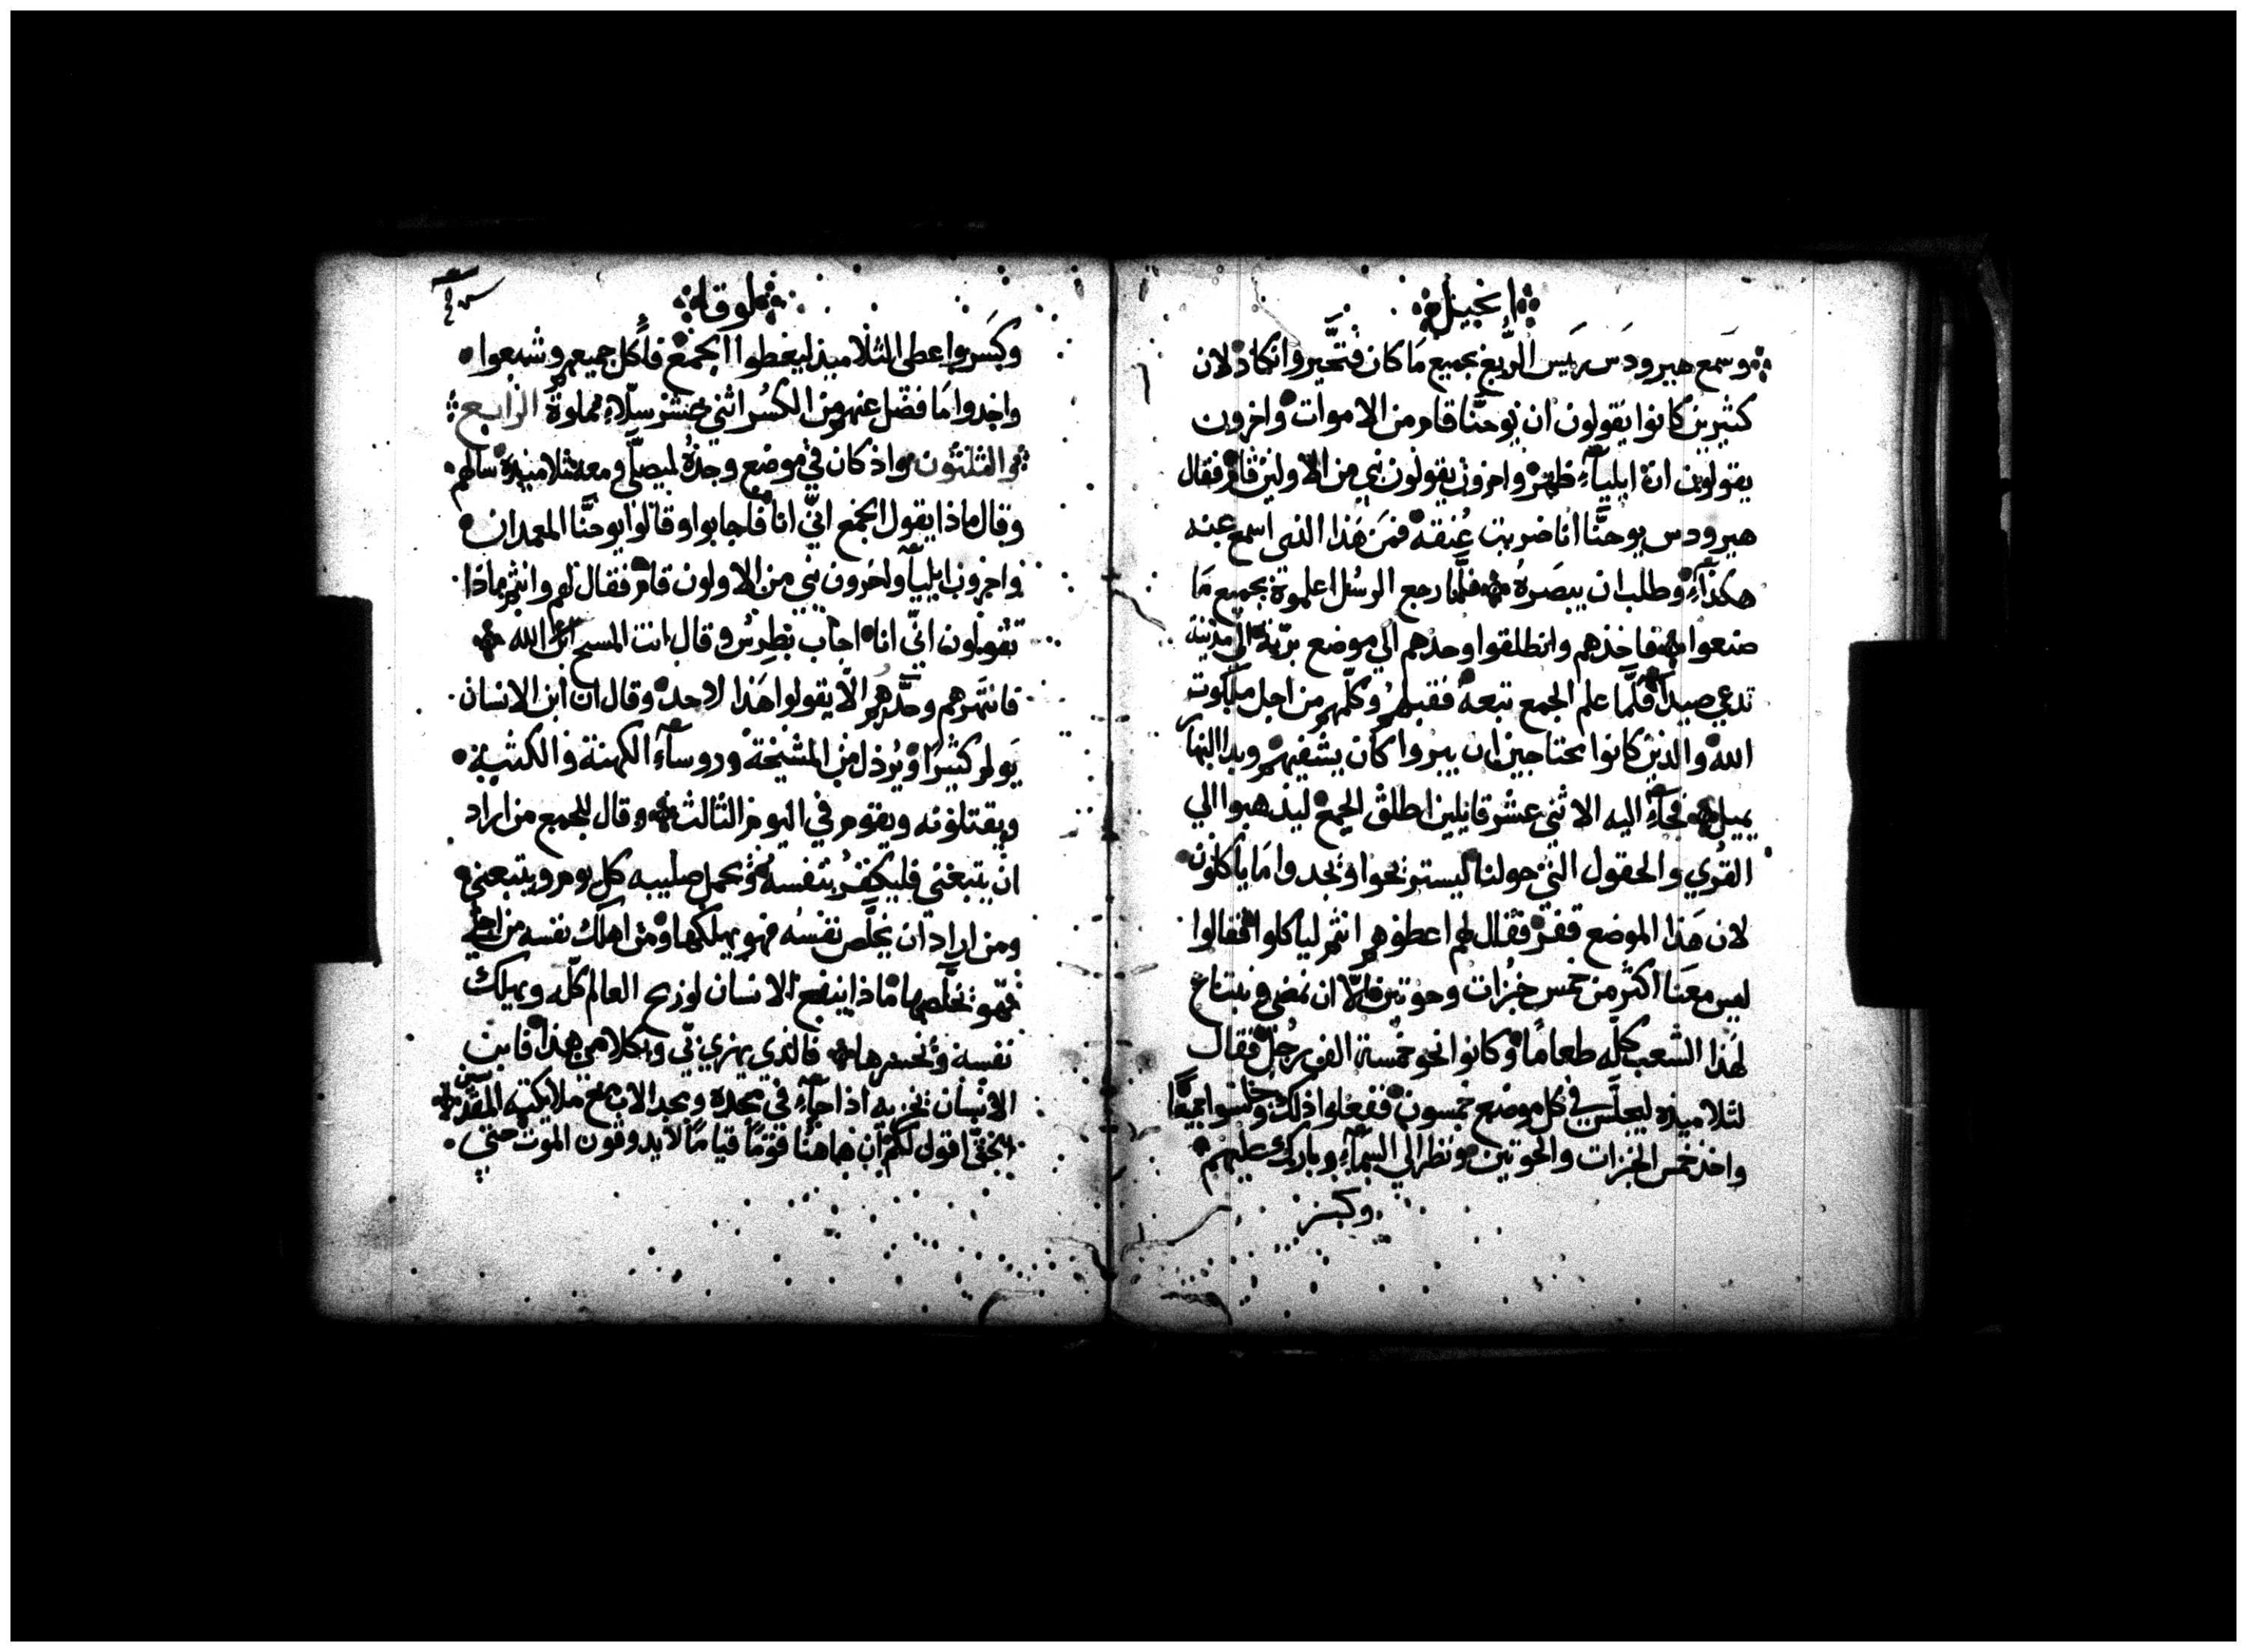 انجيل
وسمع هيرودس ريس الربع بجميع ما كان فتحير وانكاد لان
كثيرين كانوا يقولون ان يوحنا قام من الاموات واخرون
يقولون ان ايلياء ظهر واخرون يقولون نبي من الاولين قام فقال
هيرودس يوحنا انا ضربت عنقه فمن هذا الذي اسمع عنه
هكذا وطلب ان يبصره فلما رجع الرسل اعلموه بجميع ما
صنعوا فاخذهم وانطلقوا وحدهم الي موضع برية الي مدينة
تدعي صيدا فلما علم الجمع تبعه فقبلهم وكلمهم من اجل ملكوت
الله والذين كانوا محتاجين ان يبروا كان يشفيهم وبدا النهار
يميل فجاء اليه الاثني عشر قايلين اطلق الجمع ليذهبوا الي
القري والحقول التي حولنا ليستريحوا ويجدوا ما ياكلون
لان هذا الموضع قفر فقال لهم اعطوهم انتم لياكلوا فقالوا
ليس معنا اكثر من خمس خبزات وحوتين فالا ان نمضي ونبتاع
لهذا الشعب كله طعاما وكانوا نحو خمسة الف رجل فقال
لتلاميذه ليجلس في كل موضع خمسون ففعلوا ذلك وجلسوا جميعا
واخذ خمس الخبزات والحوتين ونظر الي السماء وبارك عليهم
وكسر
لوقا
وكسر واعطي التلاميذ ليعطوا الجمع فاكل جميعهم وشبعوا
واخذوا ما فضل عنهم من الكسر اثني عشر سلاء مملوة الرابع
والثلثون واذ كان في موضع وحده ليصلي ومعه تلاميذه سالهم
وقال ماذا يقول الجمع اني انا فاجابوا وقالوا يوحنا المعمدان
واخرون ايلياء واخرون نبي من الاولون قام فقال لهم وانتم ماذا
تقولون اني انا اجاب بطرس وقال انت المسيح ابن الله
فانتهرهم وحذرهم الا يقولوا هذا لاحد وقال ان ابن الانسان
يولم كثيرا ويرذل من المشيخة وروساء الكهنة والكتبة
ويقتلونه ويقوم في اليوم الثالث وقال للجمع من اراد
ان يتبعني فليكفر بنفسه ويحمل صليبه كل يوم ويتبعني
ومن اراد ان يخلص نفسه فهو يهلكها ومن اهلك نفسه من اجلي
فهو يخلصها ماذا ينفع الانسان لو ربح العالم كله ويهلك
نفسه ويخسرها فالذي يهزي بي وبكلامي هذا فابن
الانسان يخزيه اذا جاء في مجده ومجد الاب مع ملايكته المقدسين
بالحق اقول لكم ان هاهنا قوما قياما لا يذوقون الموت حتي